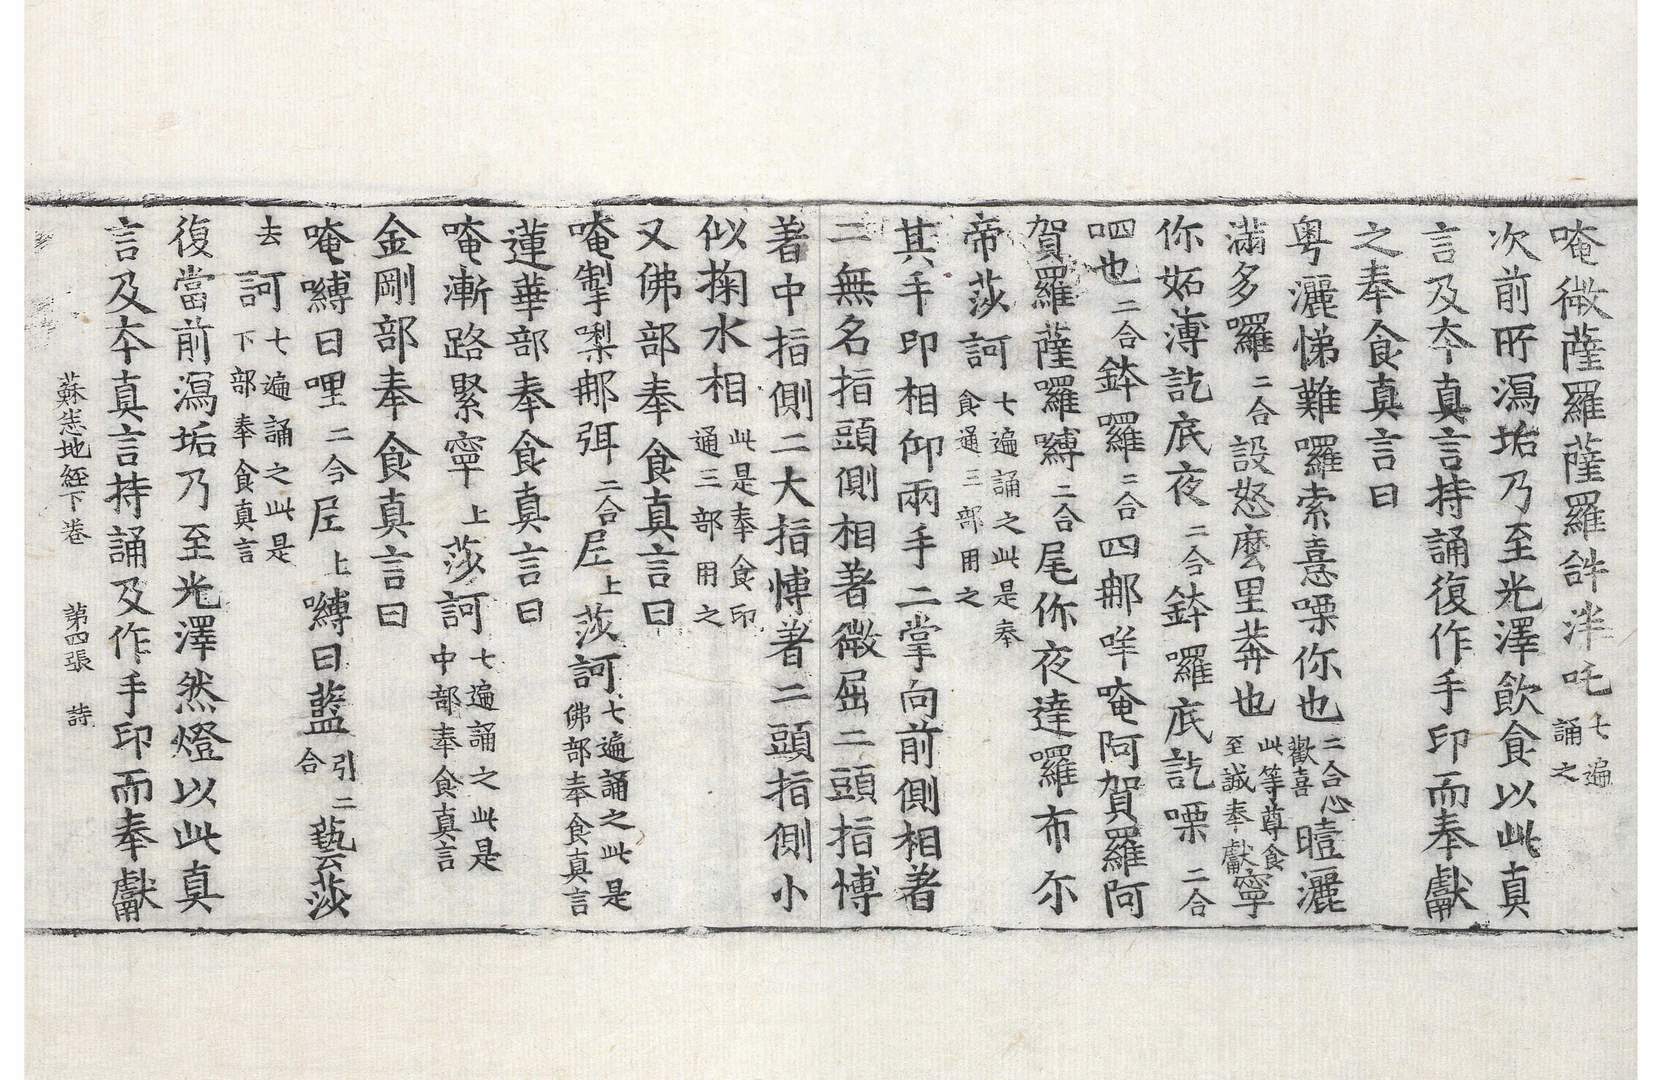 唵微薩羅薩羅䤈泮吒七遍誦之
次前所瀉垢乃至光澤飲食以此真
言及夲真言持誦復作手印而奉獻
之奉食真言曰
粤灑悌難囉索憙㗚你也二合心歡喜曀灑
滿多囉二合設怒麼里莽也此等尊食至誠奉獻寧
你妬溥訖底夜二合鉢囉底訖㗚二合
呬也二合鉢囉二合四那咩唵阿賀羅阿
賀羅薩囉嚩二合尾你夜達囉布尔
帝莎訶七遍誦之此是奉食通三部用之
其手印相仰兩手二掌向前側相著
二無名指頭側相著微屈二頭指博
著中指側二大指愽著二頭指側小
似掬水相此是奉食印通三部用之
又佛部奉食真言曰
唵掣㗚那弭二合㞐上莎訶七遍誦之此是佛部奉食真言
蓮華部奉食真言曰
唵漸路緊寧上莎訶七遍誦之此是中部奉食真言
金剛部奉食真言曰
唵嚩日哩二合㞐上嚩日藍引二合藝莎
去訶七遍誦之此是下部奉食真言
蘇悉地經下卷 第四張 詩
復當前瀉垢乃至光澤然燈以此真
言及夲真言持誦及作手印而奉獻